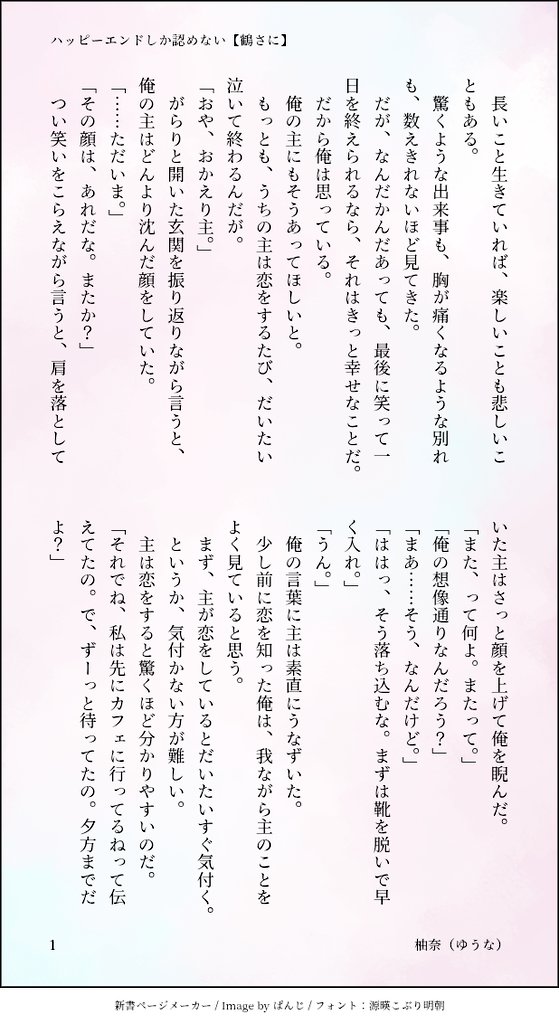 ハッピーエンドしか認めない【鶴さに】
長いこと生きていれば、楽しいことも悲しいこ
ともある。
驚くような出来事も、胸が痛くなるような別れ
も、数えきれないほど見てきた。
だが、なんだかんだあっても、最後に笑って一
日を終えられるなら、それはきっと幸せなことだ。
だから俺は思っている。
俺の主にもそうあってほしいと。
もっとも、うちの主は恋をするたび、だいたい
泣いて終わるんだが。
「おや、おかえり主。」
がらりと開いた玄関を振り返りながら言うと、
俺の主はどんより沈んだ顔をしていた。
「……ただいま。」
「その顔は、あれだな。またか？」
つい笑いをこらえながら言うと、肩を落として
いた主はさっと顔を上げて俺を睨んだ。
「また、って何よ。またって。」
「俺の想像通りなんだろう？」
「まあ……そう、なんだけど。」
「ははっ、そう落ち込むな。まずは靴を脱いで早
く入れ。」
「うん。」
俺の言葉に主は素直にうなずいた。
少し前に恋を知った俺は、我ながら主のことを
よく見ていると思う。
まず、主が恋をしているとだいたいすぐ気付く。
というか、気付かない方が難しい。
主は恋をすると驚くほど分かりやすいのだ。
「それでね、私は先にカフェに行ってるねって伝
えてたの。で、ずーっと待ってたの。夕方までだ
よ？」
1
柚奈（ゆうな）
新書ページメーカー / Image by ぱんじ / フォント：源暎こぶり明朝